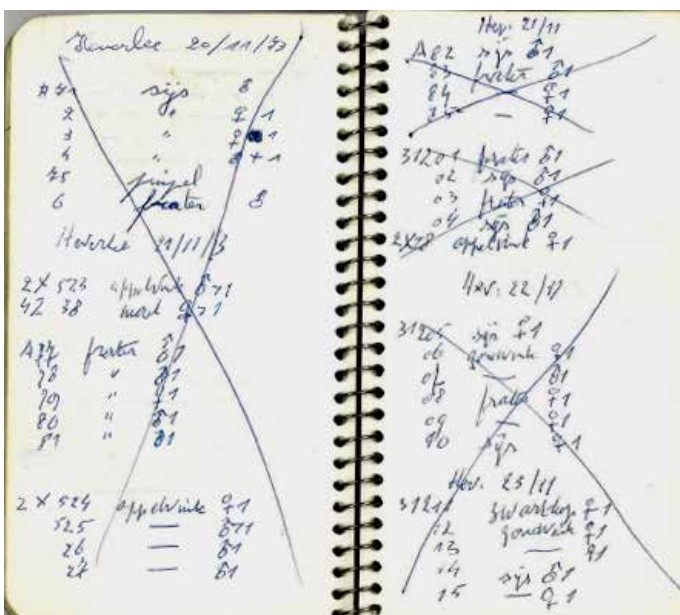 Heverlee 20/11/73
#71 sijs ♂
2 " ♀ 1
3 " ♀ 1
4 " ♂ + 1
75 pimpel
6 frater ♂
Heverlee 21/11/73
2X523 appelvink ♂ >1
4Z 38 merel ♀ >1
A77 frater ♂1
78 " ♂1
79 " ♀1
80 " ♂1
81 " ♂1
2X524 appelvink ♀1
525 — ♂>1
26 — ♂1
27 — ♂1
Hev. 21/11
A82 sijs ♂1
83 frater ♂1
84 ♀1
85 — ♀1
31201 frater ♂1
02 sijs ♂1
03 frater ♀1
04 sijs ♂1
2X528 appelvink ♀1
Hev. 22/11
31205 sijs ♀1
06 goudvink ♀1
07 — ♂1
08 frater ♀1
09 — ♀1
10 sijs ♀1
Hev. 23/11
31211 zwartkop ♀1
12 goudvink ♀1
13 — ♀1
14 sijs ♂1
15 — ♀1